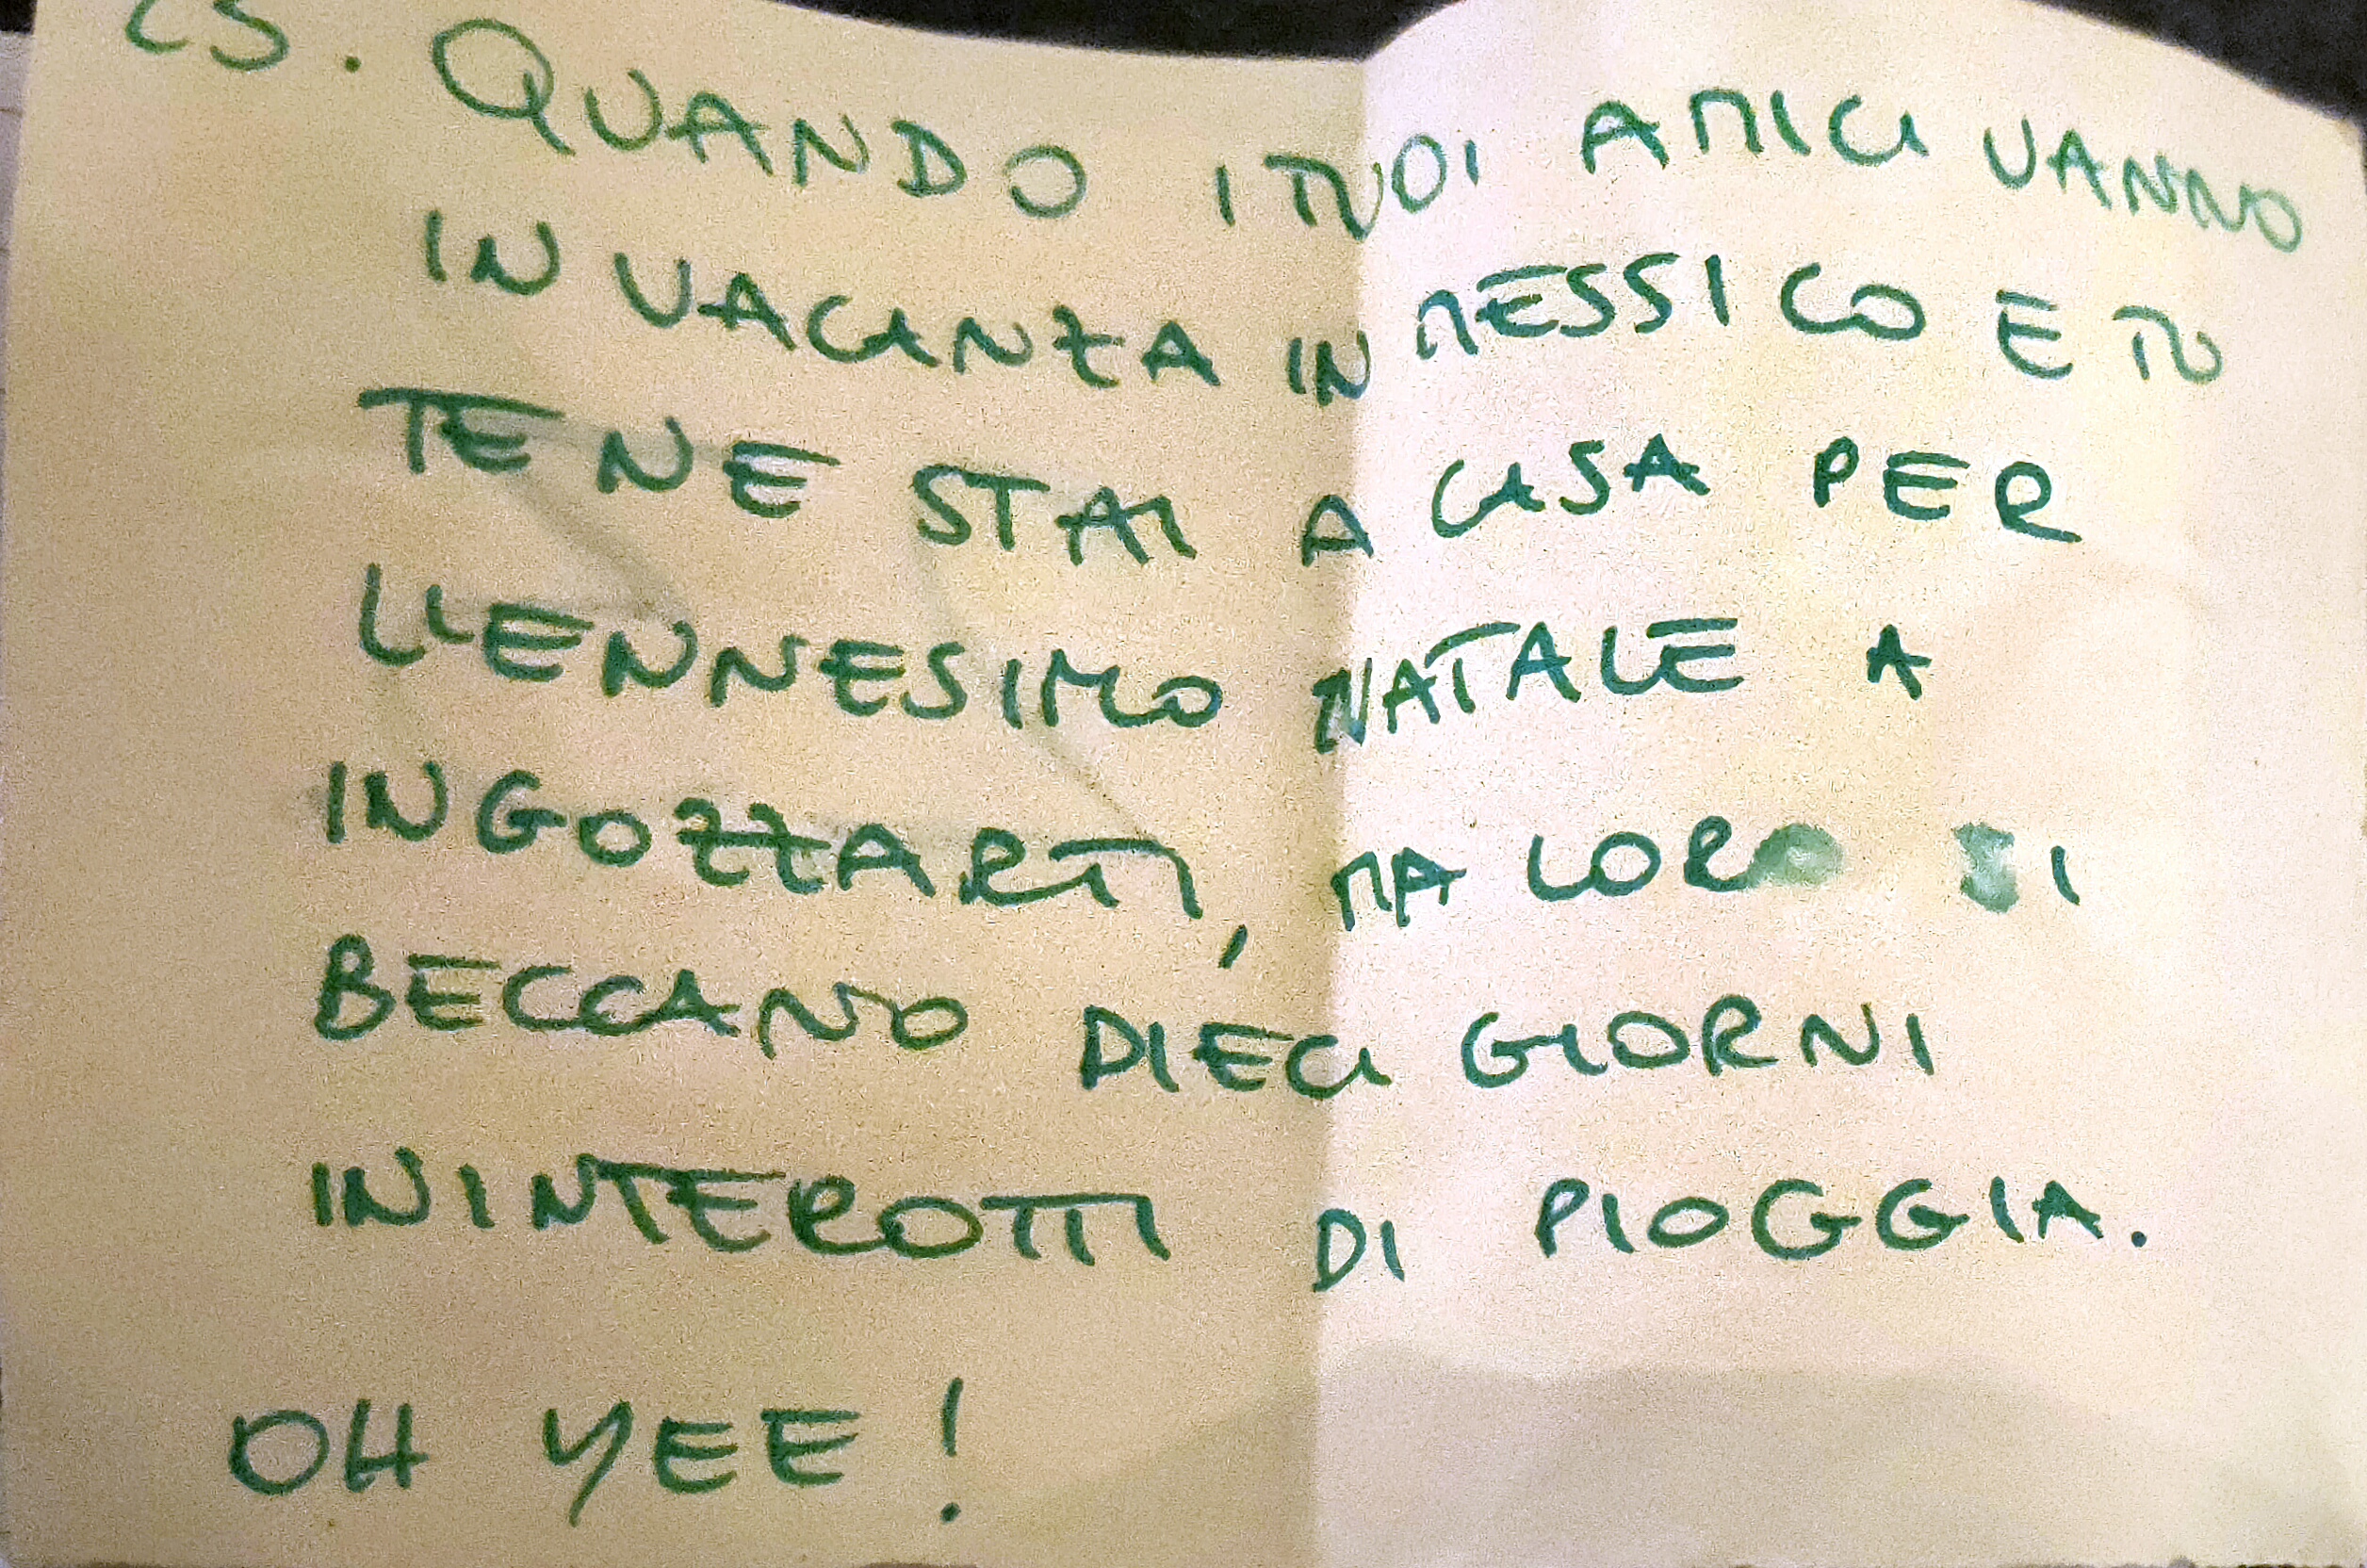 25. QUANDO I TUOI AMICI VANNO
IN VACANZA IN MESSICO E TU
TE NE STAI A CASA PER
L'ENNESIMO NATALE A
INGOZZARTI, MA LORO SI
BECCANO DIECI GIORNI
ININTEROTTI DI PIOGGIA.
OH YEE!